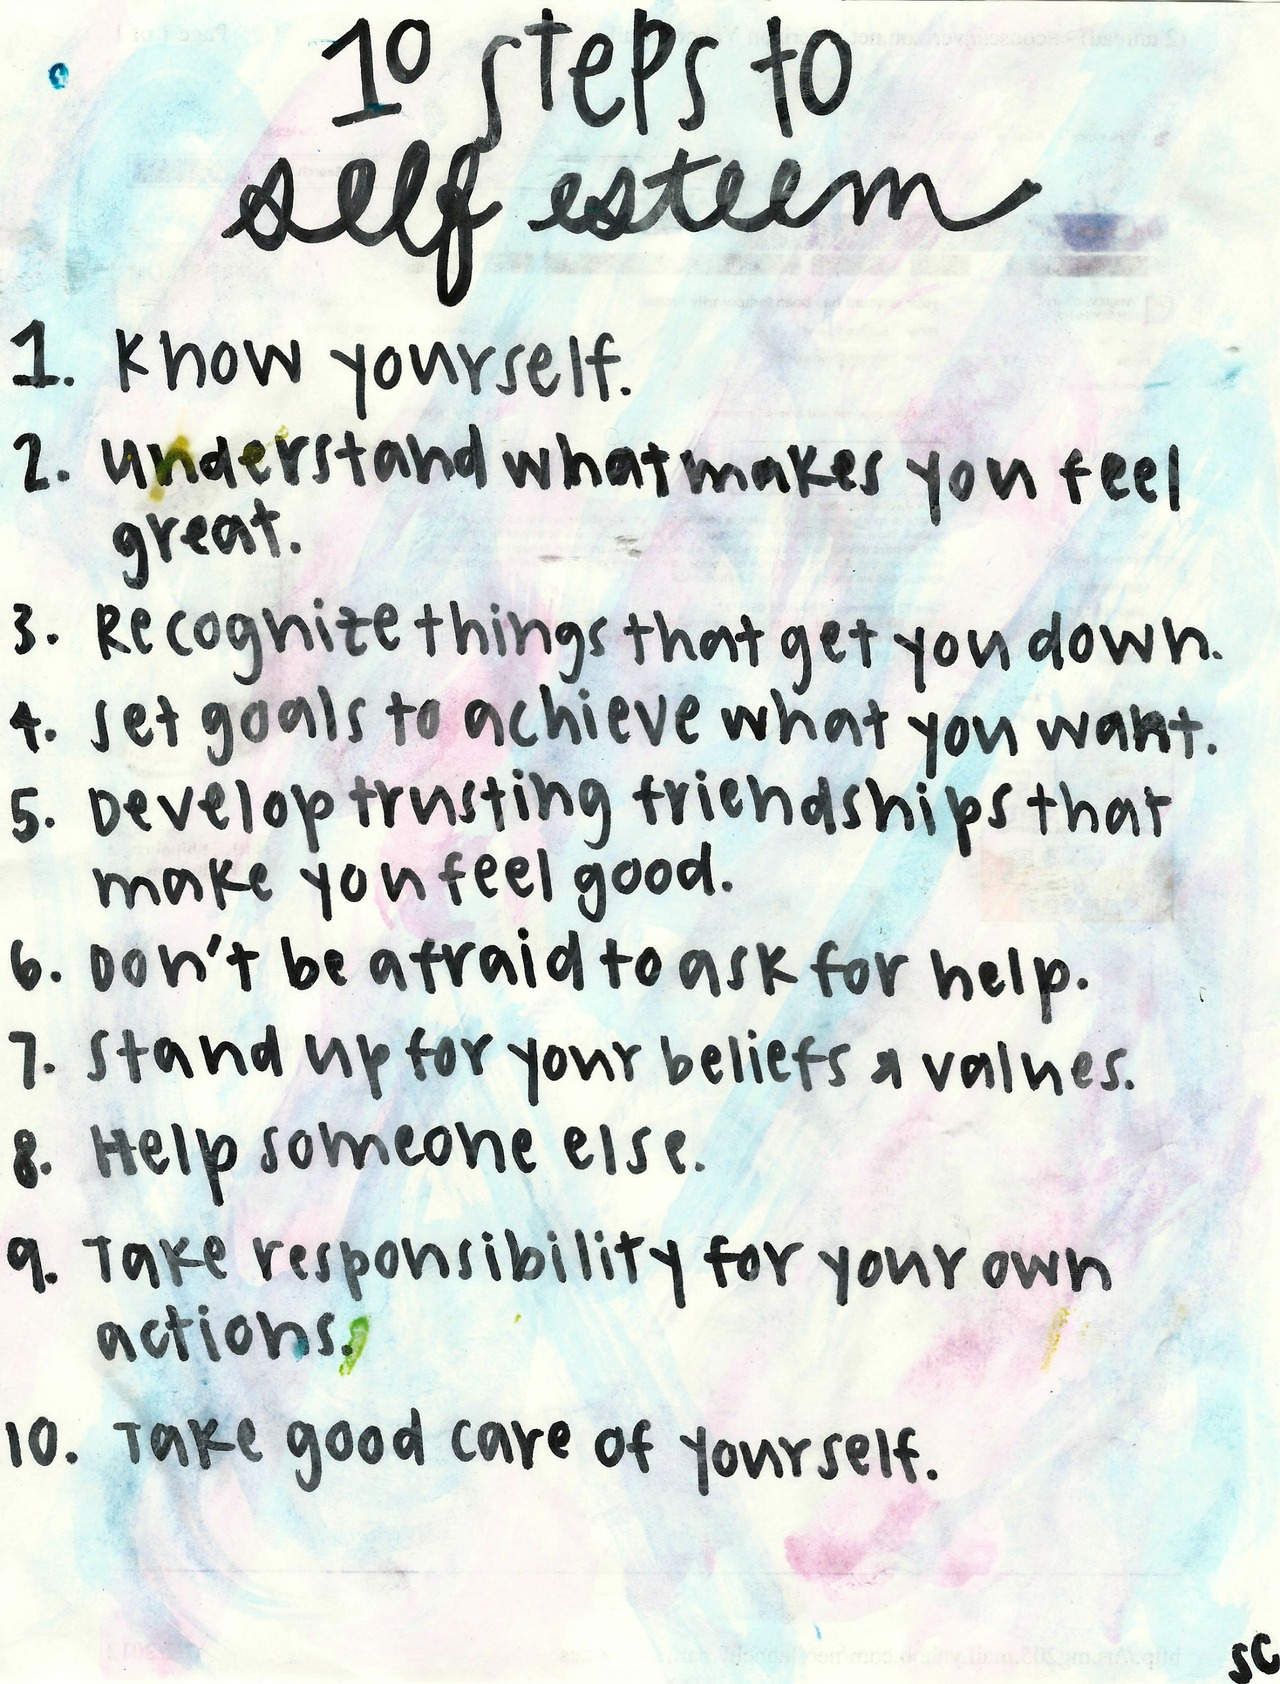 10 steps to
self esteem
1. Know yourself.
2. understand what makes you feel
great.
3. Recognize things that get you down.
4. Set goals to achieve what you want.
5. Develop trusting friendships that
make you feel good.
6. Don't be afraid to ask for help.
7. Stand up for your beliefs & values.
8. Help someone else.
9. Take responsibility for your own
actions.
10. Take good care of yourself.
SC